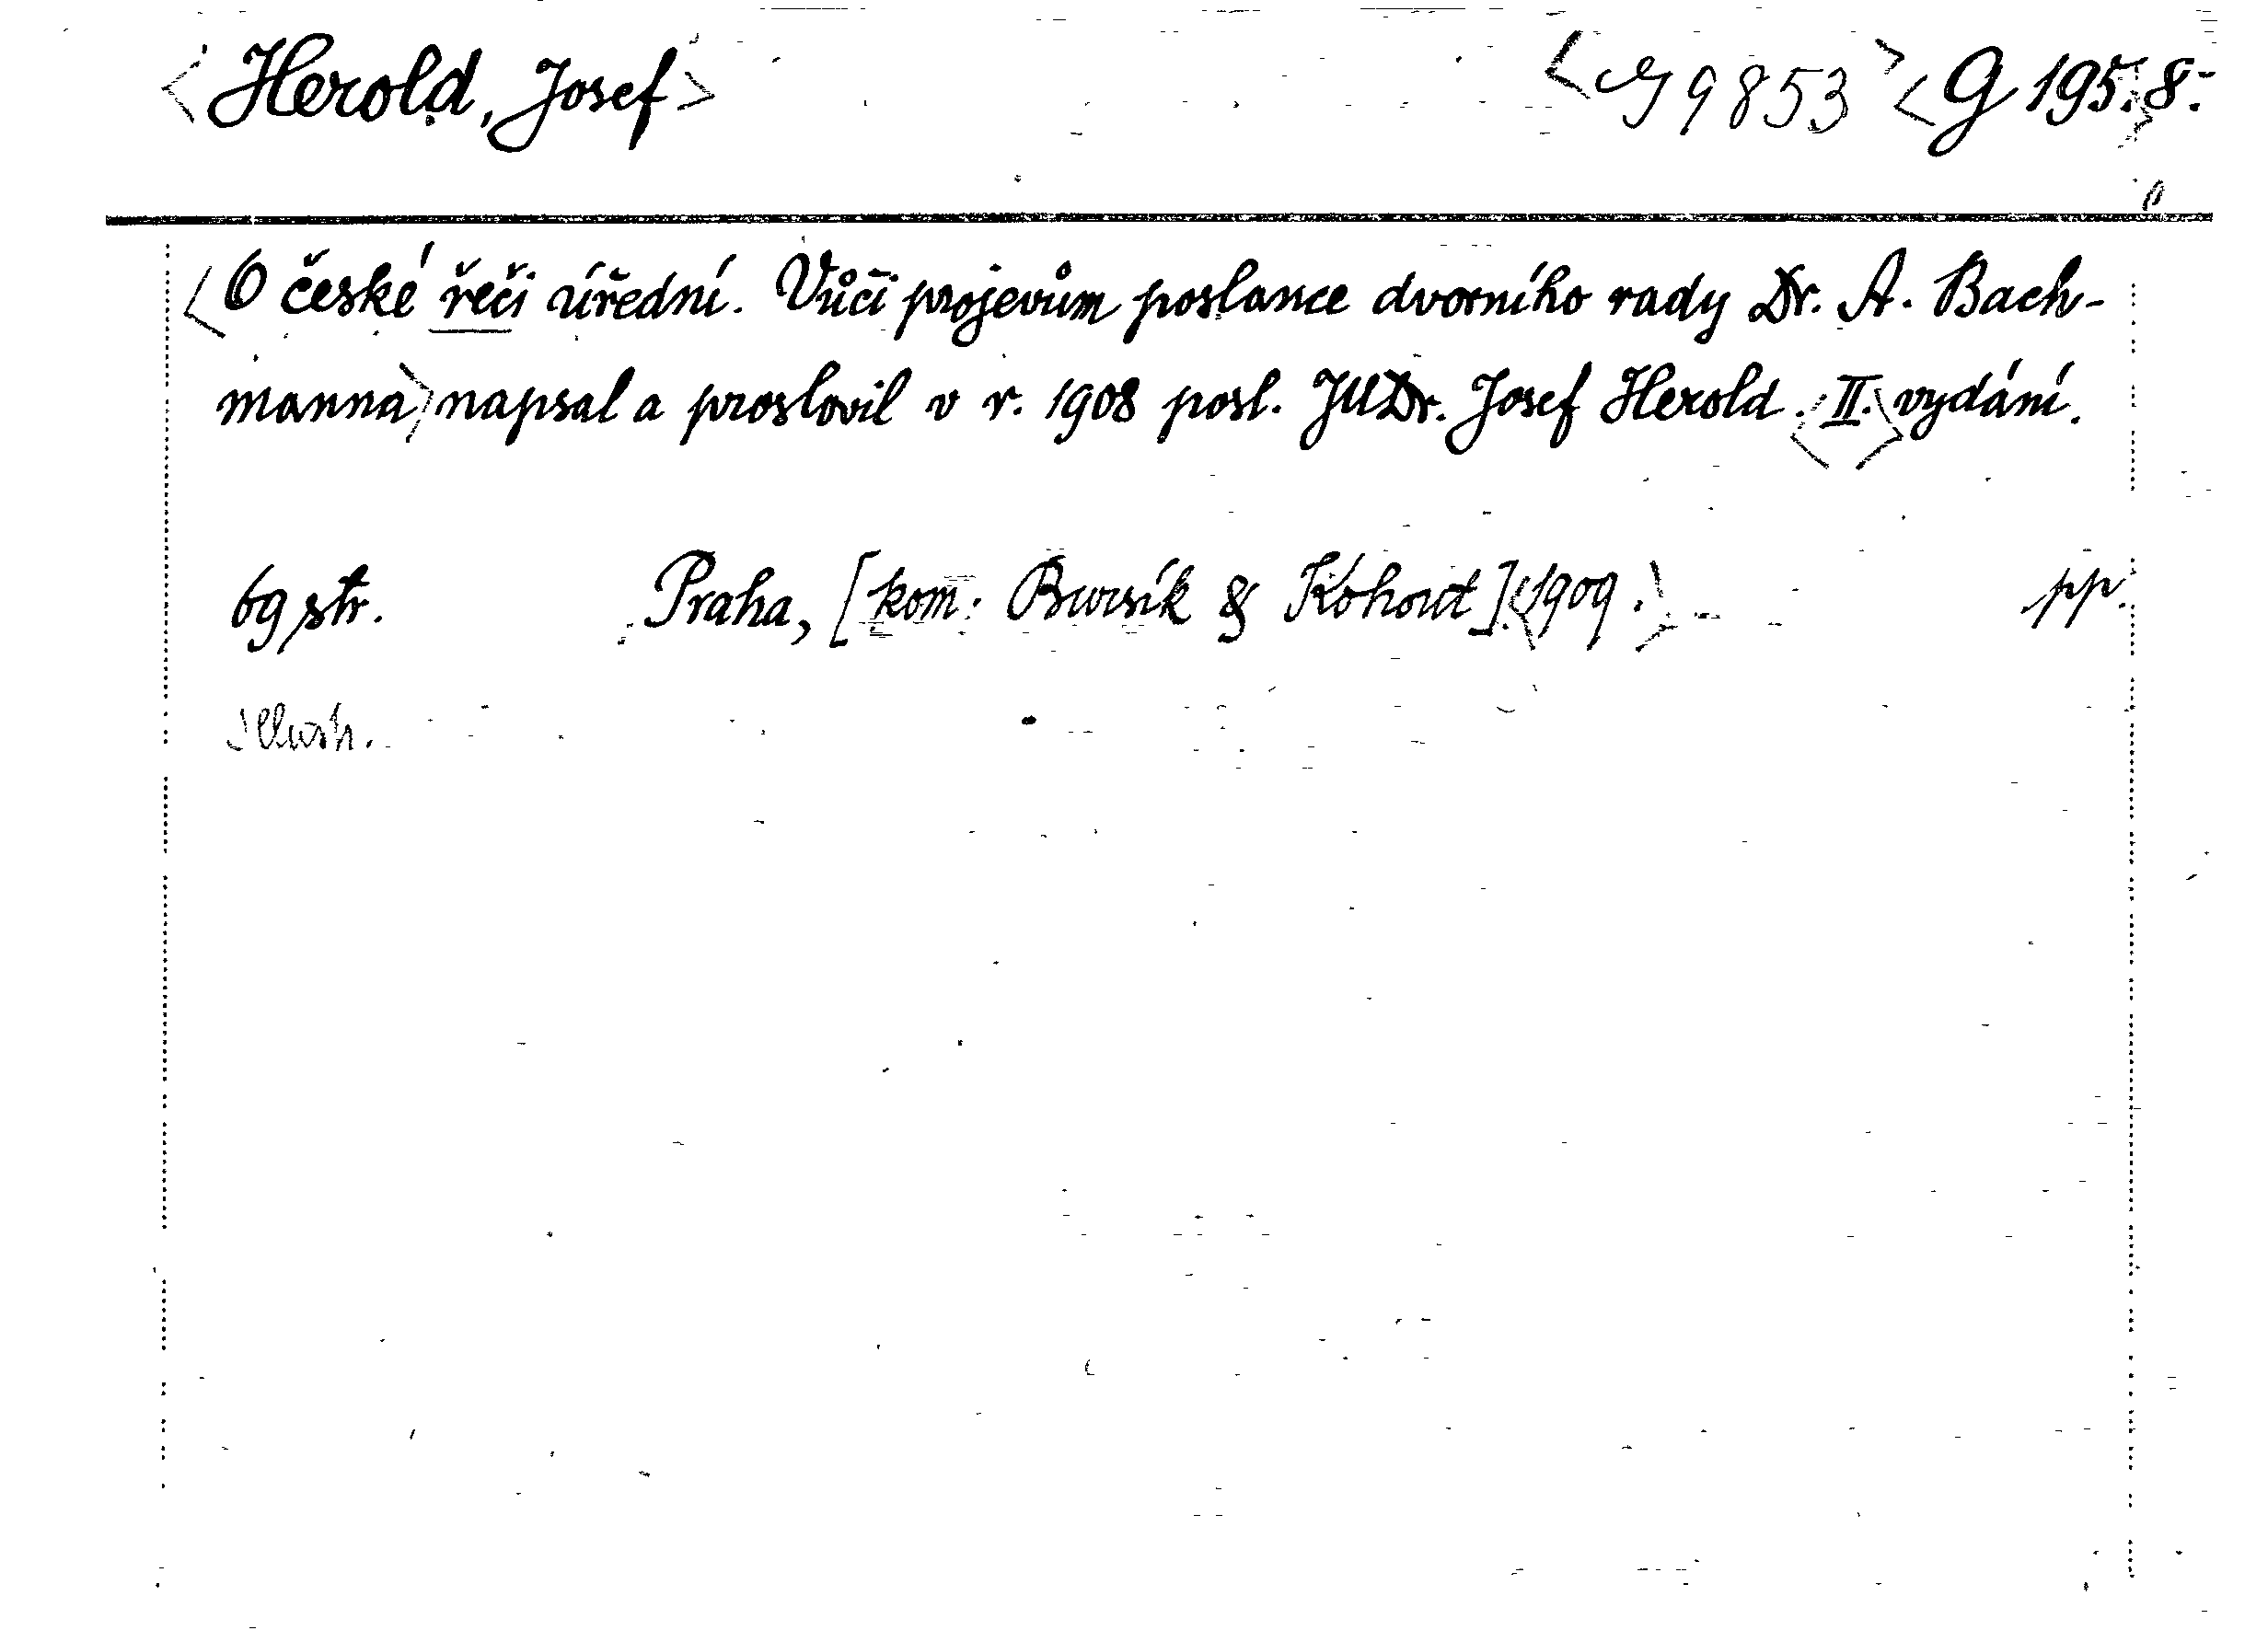 <Herold, Josef> <G 9853> <G 195.>8.
<O české řeči úřední. Vůči projevům poslance dvorního rady Dr. A. Bach-
manna> napsal a proslovil v r. 1908 posl. JUDr. Josef Herold. <II.> vydání.
69 str. Praha, [kom. Bursík & Kohout].<1909.> pp.